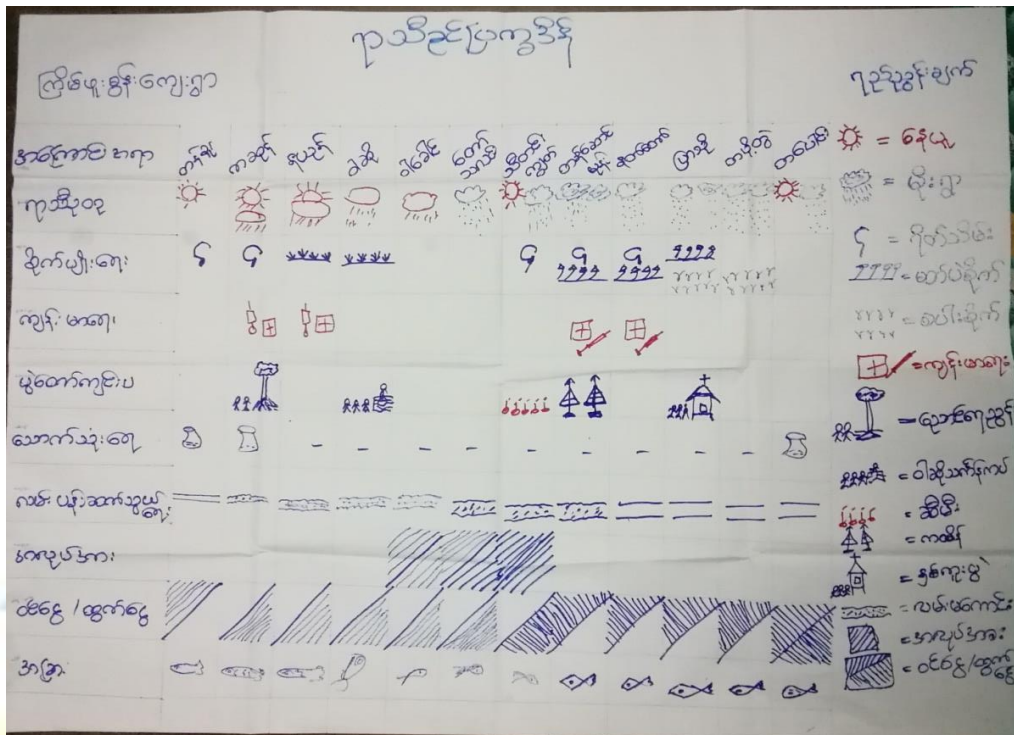 ရာသီခွင်ပြက္ခဒိန်
ကြိမ်ဖူးစွန်းကျေးရွာ
ရည်ညွှန်းချက်
အကြောင်းအရာ တန်ခူး ကဆုန် နယုန် ဝါဆို ဝါခေါင် တော်သလင်း သီတင်းကျွတ် တန်ဆောင်မုန်း နတ်တော် ပြာသို တပို့တွဲ တပေါင်း
ရာသီဥတု
စိုက်ပျိုးရေး
ကျန်းမာရေး
ပွဲတော်ကျင်းပ
သောက်သုံးရေ
လမ်းပန်းဆက်သွယ်ရေး
အလုပ်အား
ဝင်ငွေ/ထွက်ငွေ
အခြား
= နေပူ
= မိုးရွာ
= ရိတ်သိမ်း
= မတ်ပဲစိုက်
= စပါးစိုက်
= ကျန်းမာရေး
= ညောင်ရေသွန်
= ဝါဆိုသင်္ကန်းကပ်
= ဆီမီး
= ကထိန်
= နှစ်ကူးပွဲ
= လမ်းမကောင်း
= အလုပ်အား
= ဝင်ငွေ/ထွက်ငွေ